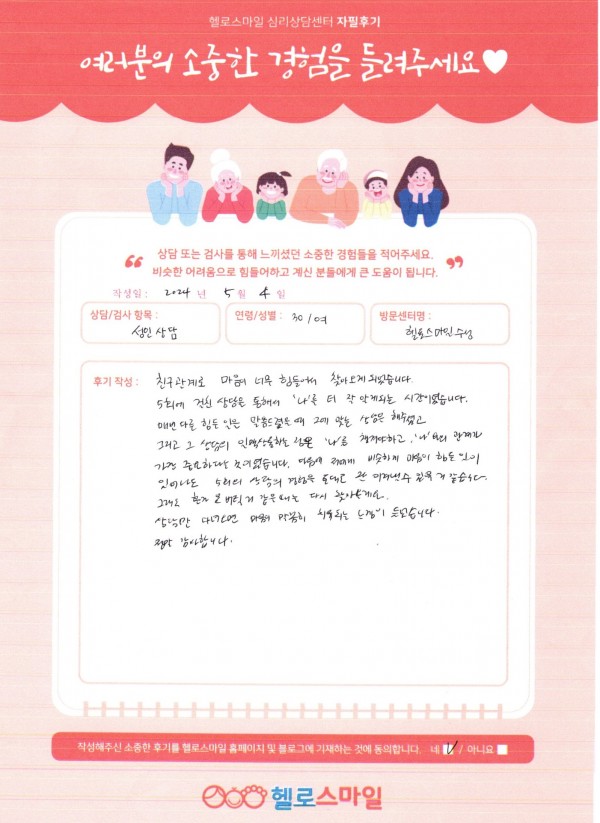 헬로스마일 심리상담센터 자필후기
여러분의 소중한 경험을 들려주세요♥
“ 상담 또는 검사를 통해 느끼셨던 소중한 경험들을 적어주세요.
비슷한 어려움으로 힘들어하고 계신 분들에게 큰 도움이 됩니다. ”
작성일 : 2024 년 5 월 4 일
상담/검사 항목 : 성인상담
연령/성별 : 30/여
방문센터명 : 헬로스마일 수성
후기 작성 : 친구관계로 마음이 너무 힘들어서 찾아오게 되었습니다.
5회에 걸친 상담을 통해서 '나'를 더 잘 알게되는 시간이었습니다.
매번 다른 힘든 일을 말씀드렸을 때 그에 맞는 상담을 해주셨고
그리고 그 상담의 '나'를 챙겨야하고, '나'와의 관계가
가장 중요하다는 것이었습니다. 다음에 비슷하게 마음이 힘든 일이
있더라도 5회의 상담의 경험을 토대로 잘 이겨낼 수 있을 거 같습니다.
그래도 혼자 못 버틸 거 같을때는 다시 찾아올게요.
상담만 다녀가면 마음이 말끔히 치유되는 느낌이 들었습니다.
정말 감사합니다.
작성해주신 소중한 후기를 헬로스마일 홈페이지 및 블로그에 기재하는 것에 동의합니다. 네 ✓ / 아니요
헬로스마일